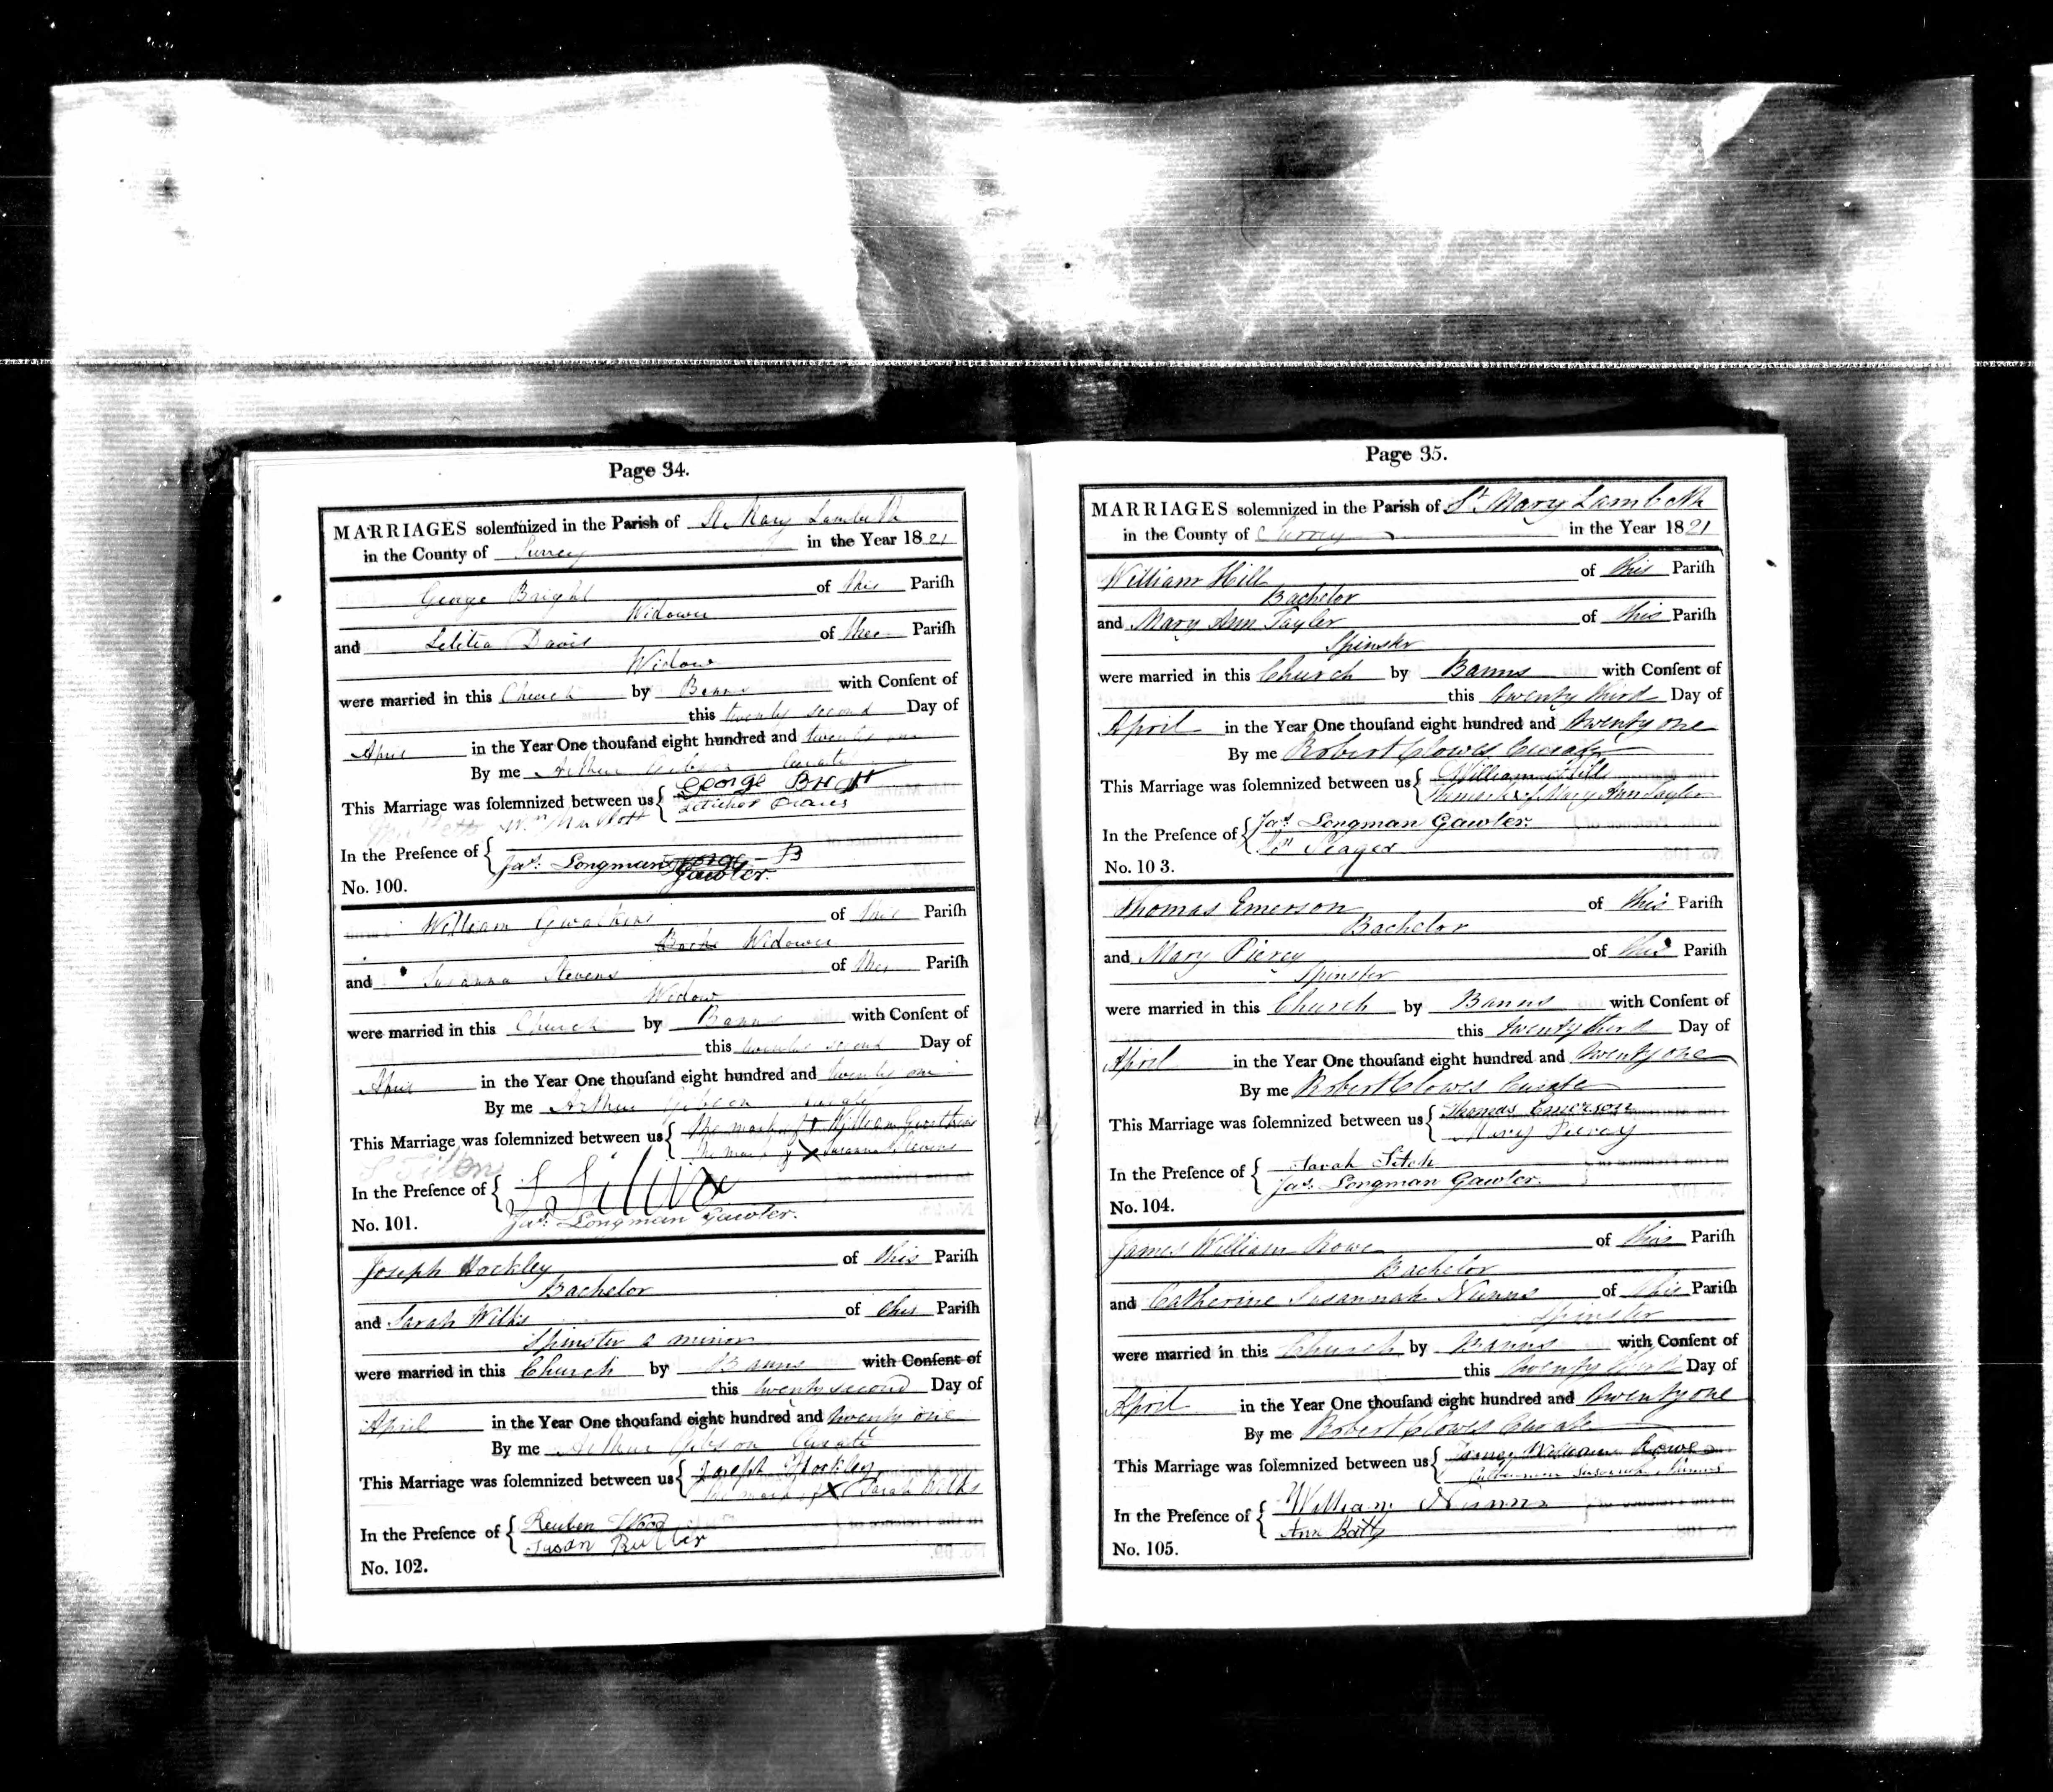 Page 34.
MARRIAGES solemnized in the Parish of St. Mary Lambeth
in the County of Surrey in the Year 1821
George Bright of this Parish
Widower
and Letitia Davis of this Parish
Widow
were married in this Church by Banns with Consent of
this twenty second Day of
April in the Year One thousand eight hundred and twenty one
By me Arthur Gibson Curate
This Marriage was solemnized between us { George
In the Presence of { Jas. Longman Gawler.
No. 100.
William Gwatkins of this Parish
Widower
and Susanna Stevens of this Parish
Widow
were married in this Church by Banns with Consent of
this twenty second Day of
April in the Year One thousand eight hundred and twenty one
By me Arthur Gibson Curate
This Marriage was solemnized between us { The mark of + William Gwatkins
The mark of X Susanna Stevens
In the Presence of {
Jas. Longman Gawler.
No. 101.
Joseph Hockley of this Parish
Bachelor
and Sarah Wilks of this Parish
Spinster a minor
were married in this Church by Banns with Consent of
this twenty second Day of
April in the Year One thousand eight hundred and twenty one
By me Arthur Gibson Curate
This Marriage was solemnized between us { Joseph Hockley
The mark of X Sarah Wilks
In the Presence of { Reuben Wood
Susan Butler
No. 102.
Page 35.
MARRIAGES solemnized in the Parish of St Mary Lambeth
in the County of Surrey in the Year 1821
William Hill of this Parish
Bachelor
and Mary Ann Tayler of this Parish
Spinster
were married in this Church by Banns with Consent of
this twenty third Day of
April in the Year One thousand eight hundred and twenty one
By me Robert Clowes Curate
This Marriage was solemnized between us { William Hill
The mark x of Mary Ann Tayler
In the Presence of { Jas. Longman Gawler.
Seager
No. 103.
Thomas Emerson of this Parish
Bachelor
and Mary Piercy of this Parish
Spinster
were married in this Church by Banns with Consent of
this twenty third Day of
April in the Year One thousand eight hundred and twenty one
By me Robert Clowes Curate
This Marriage was solemnized between us { Thomas Emerson
Mary Piercy
In the Presence of { Sarah Fitch
Jas. Longman Gawler.
No. 104.
James William Rowe of this Parish
Bachelor
and Catherine Susannah Nunns of this Parish
Spinster
were married in this Church by Banns with Consent of
this twenty third Day of
April in the Year One thousand eight hundred and twenty one
By me Robert Clowes Curate
This Marriage was solemnized between us { James William Rowe
Catherine Susannah Nunns
In the Presence of { William Nunns
Ann Batty
No. 105.